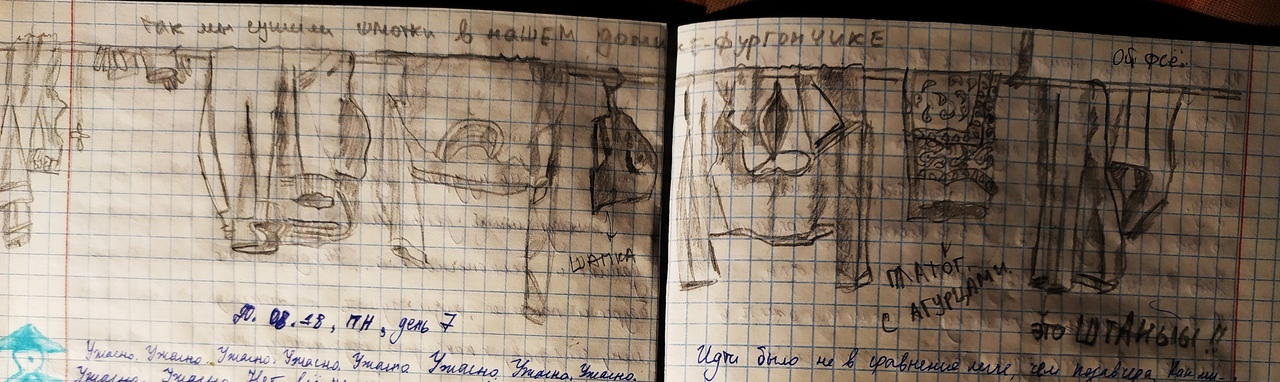 Так мы сушили шмотки в нашем доми
ке-фургончике
Об фсё.
шапка
платог
с агурцами.
это ШТАНЫЫ!!
20.08.18, пн, день 7
Ужасно. Ужасно. Ужасно. Ужасно. Ужасно Ужасно. Ужасно. Ужасно.
Ужасно. Ужасно. Нет
Идти было не в сравнение легче, чем позавчера.